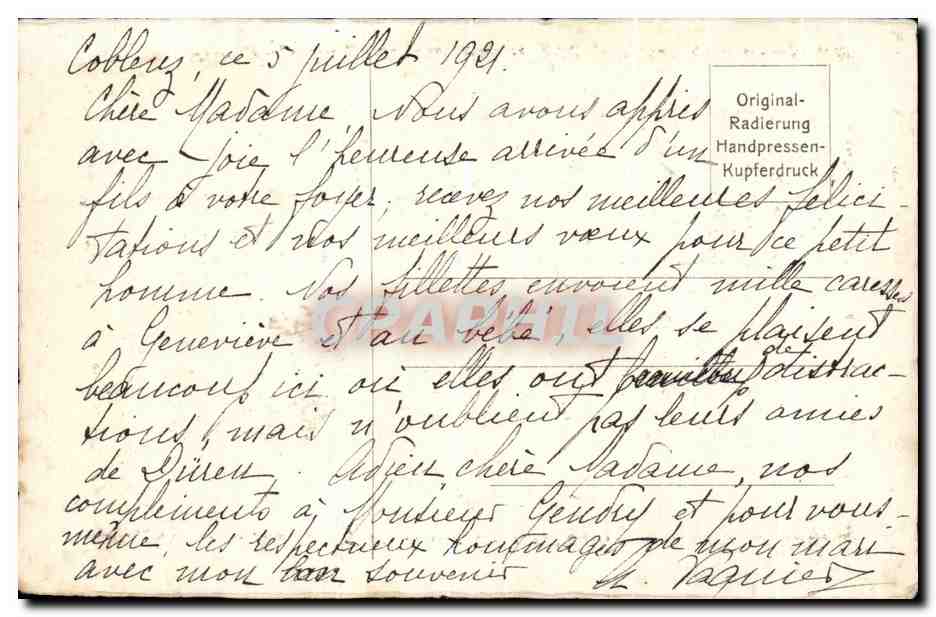 Coblenz, ce 5 juillet 1921.
Chère Madame, Nous avons appris
avec joie l'heureuse arrivée d'un
fils à votre foyer, recevez nos meilleures félici-
tations et nos meilleurs vœux pour ce petit
homme. Nos fillettes envoient mille caresses
à Geneviève et au bébé, elles se plaisent
beaucoup ici où elles ont de distrac-
tions, mais n'oublient pas leurs amies
de Düren. Adieu, chère Madame, nos
compliments à Monsieur Gendry et pour vous-
même, les respectueux hommages de mon mari
avec mon bon souvenir
Original-
Radierung
Handpressen-
Kupferdruck
CPAPHIL